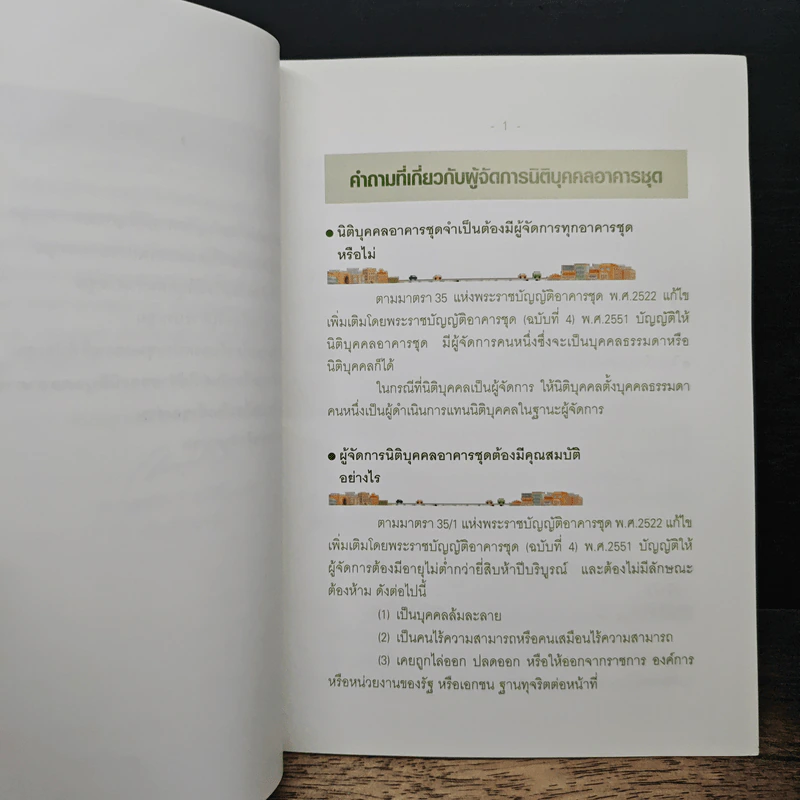 - 1 -
คำถามที่เกี่ยวกับผู้จัดการนิติบุคคลอาคารชุด
● นิติบุคคลอาคารชุดจำเป็นต้องมีผู้จัดการทุกอาคารชุด
หรือไม่
ตามมาตรา 35 แห่งพระราชบัญญัติอาคารชุด พ.ศ.2522 แก้ไข
เพิ่มเติมโดยพระราชบัญญัติอาคารชุด (ฉบับที่ 4) พ.ศ.2551 บัญญัติให้
นิติบุคคลอาคารชุด มีผู้จัดการคนหนึ่งซึ่งจะเป็นบุคคลธรรมดาหรือ
นิติบุคคลก็ได้
ในกรณีที่นิติบุคคลเป็นผู้จัดการ ให้นิติบุคคลตั้งบุคคลธรรมดา
คนหนึ่งเป็นผู้ดำเนินการแทนนิติบุคคลในฐานะผู้จัดการ
● ผู้จัดการนิติบุคคลอาคารชุดต้องมีคุณสมบัติ
อย่างไร
ตามมาตรา 35/1 แห่งพระราชบัญญัติอาคารชุด พ.ศ.2522 แก้ไข
เพิ่มเติมโดยพระราชบัญญัติอาคารชุด (ฉบับที่ 4) พ.ศ.2551 บัญญัติให้
ผู้จัดการต้องมีอายุไม่ต่ำกว่ายี่สิบห้าปีบริบูรณ์ และต้องไม่มีลักษณะ
ต้องห้าม ดังต่อไปนี้
(1) เป็นบุคคลล้มละลาย
(2) เป็นคนไร้ความสามารถหรือคนเสมือนไร้ความสามารถ
(3) เคยถูกไล่ออก ปลดออก หรือให้ออกจากราชการ องค์การ
หรือหน่วยงานของรัฐ หรือเอกชน ฐานทุจริตต่อหน้าที่